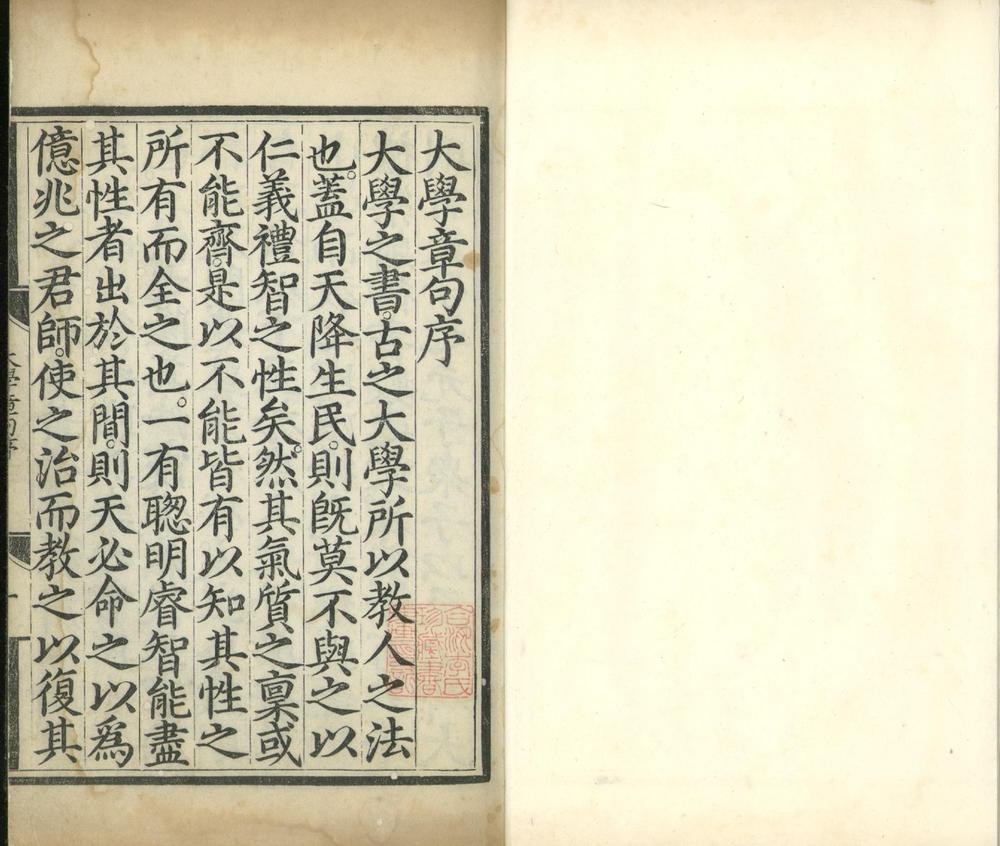 大學章句序
大學之書。古之大學所以教人之法
也。蓋自天降生民。則旣莫不與之以
仁義禮智之性矣。然其氣質之稟或
不能齊。是以不能皆有以知其性之
所有而全之也。一有聰明睿智能盡
其性者出於其間。則天必命之以爲
億兆之君師。使之治而教之以復其
大學章句序
一